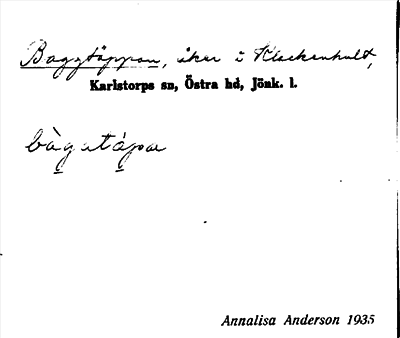 Baggtäppan, åker i Klockenhult,
Karlstorps sn, Östra hd, Jönk. l.
bàgatápa
Annalisa Anderson 1935